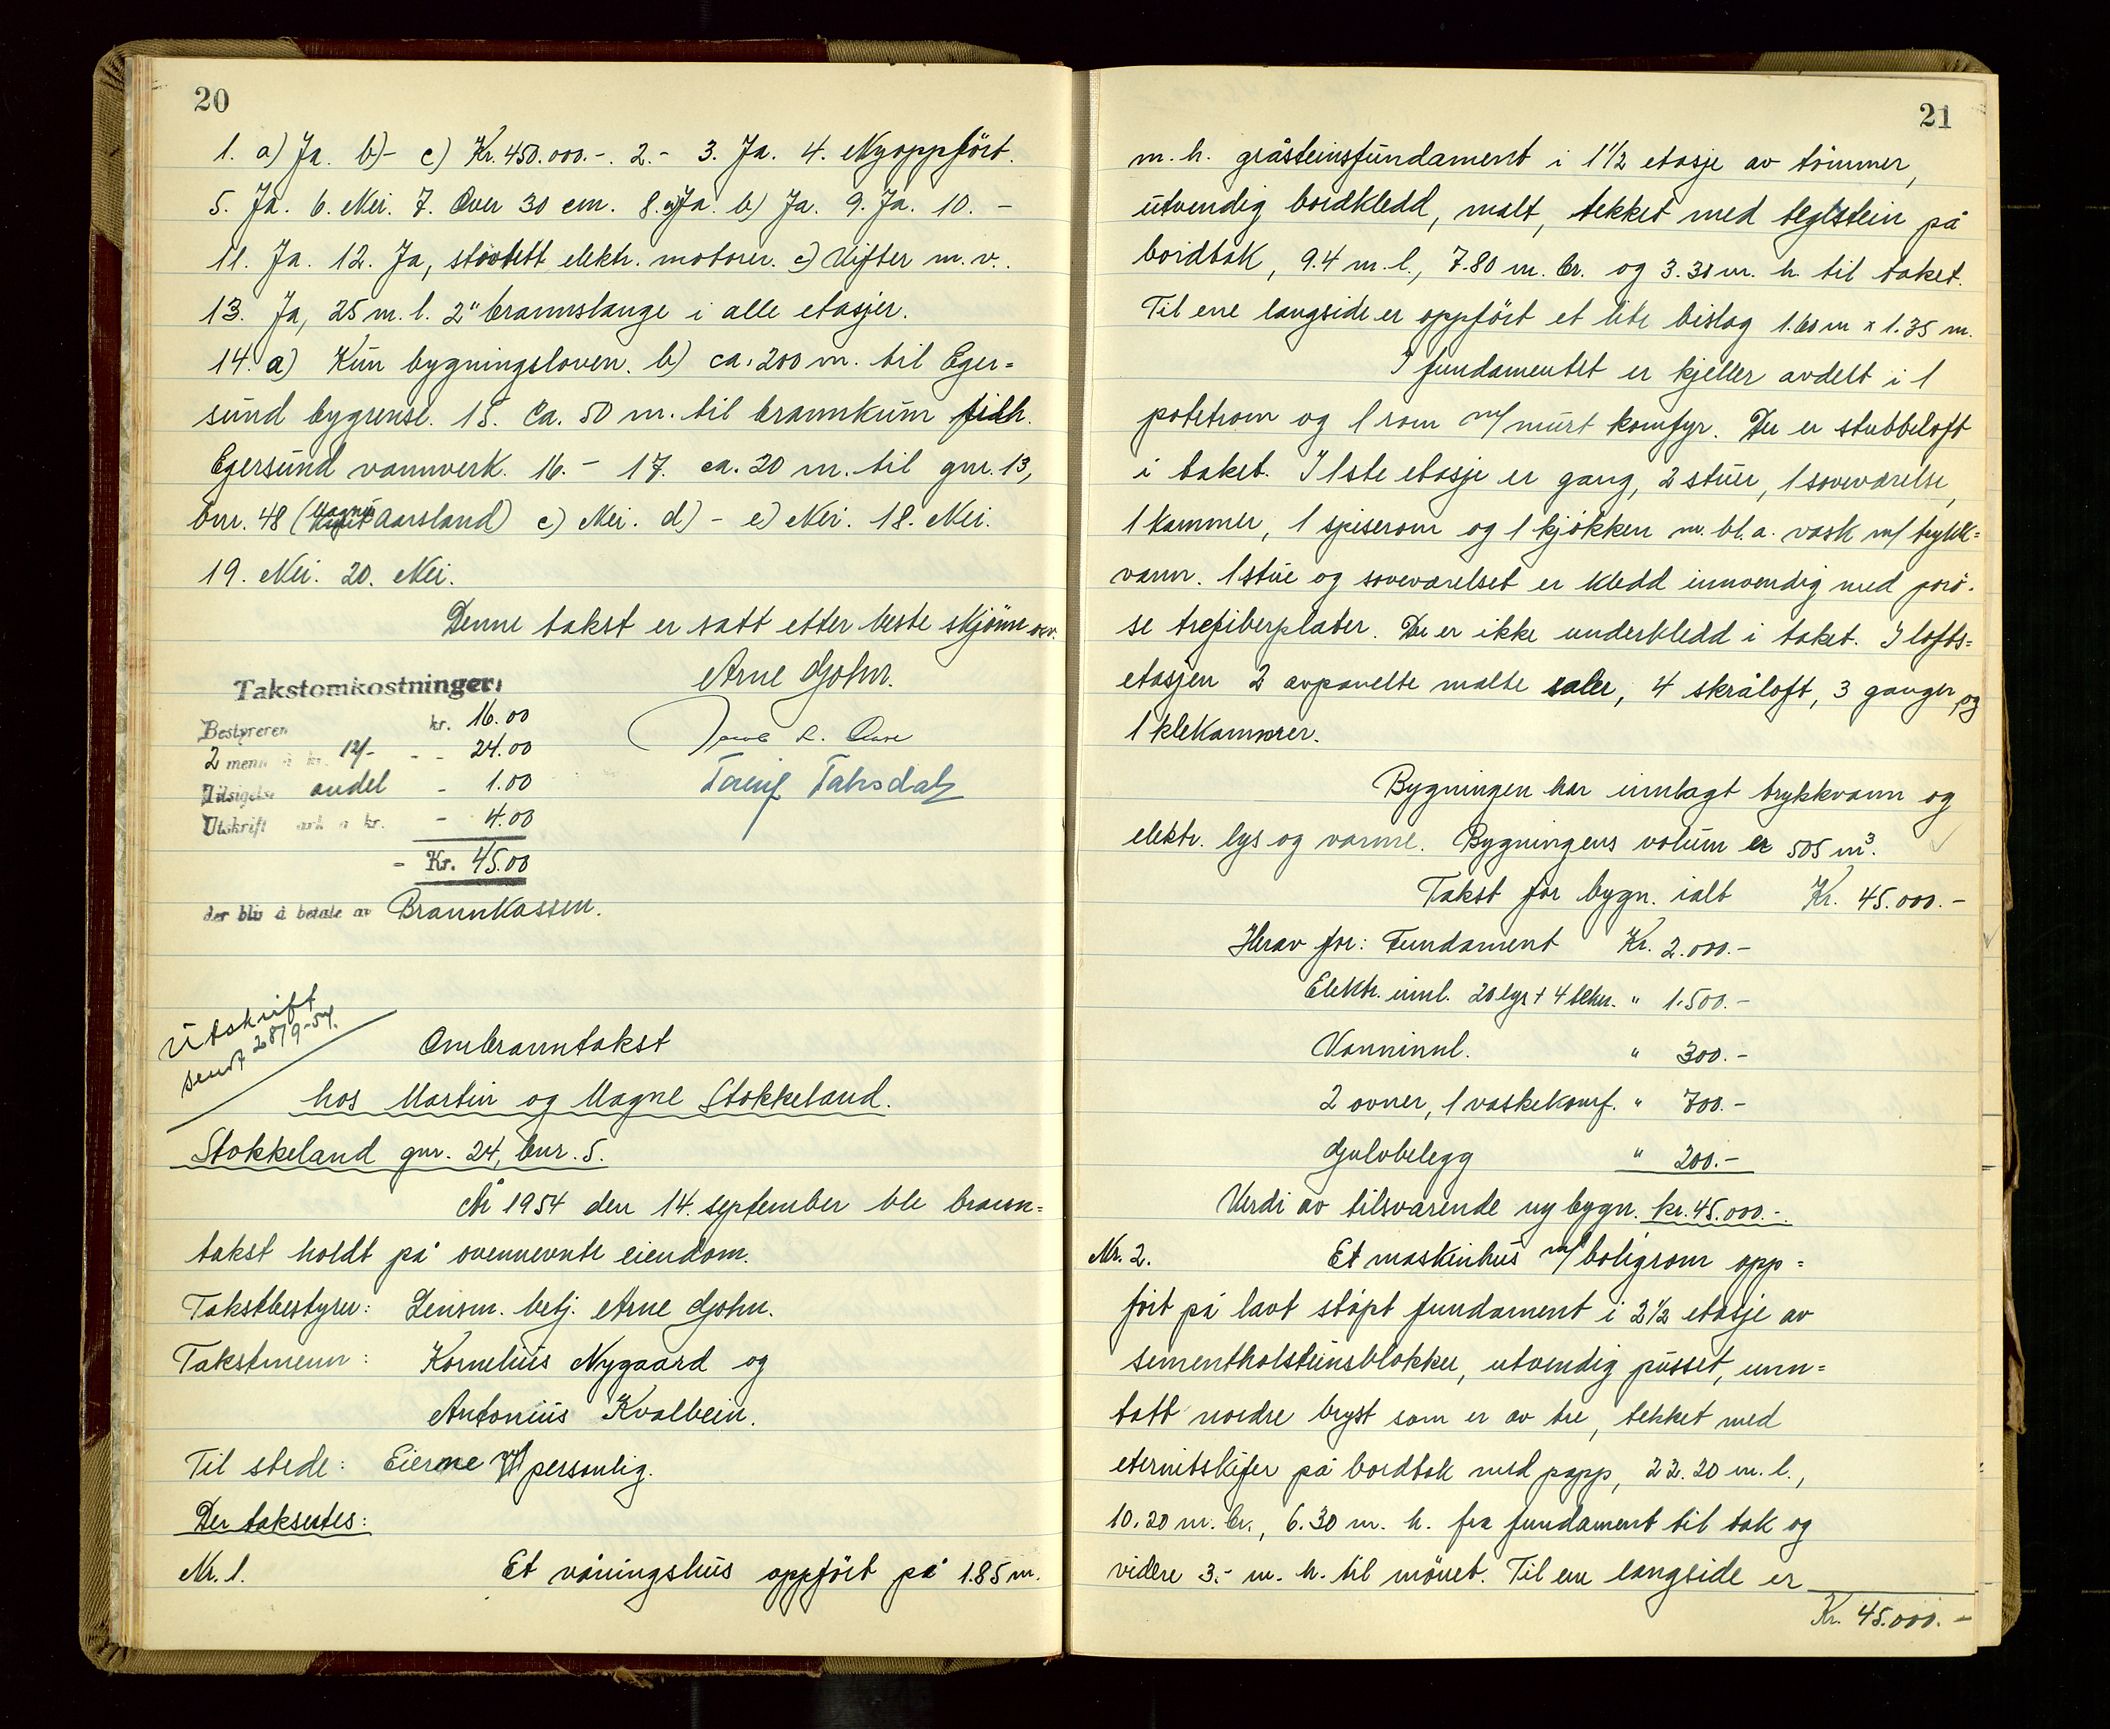 20
1. a) Ja. b)- c) Kr. 450.000.-. 2.- 3. Ja. 4. Nyoppfört.
5. Ja. 6. Nei. 7. Over 30 cm. 8. a) Ja. b) Ja. 9. Ja. 10. -
11. Ja. 12. Ja, stövtett elektr. motorer. c) Vifter m.v..
13. Ja, 25 m. l. 2" brannslange i alle etasjer.
14. a) Kun bygningsloven. b) ca. 200 m. til Eger=
sund bygrense. 15. Ca. 50 m. til brannkum tilh.
Egersund vannverk. 16. - 17. ca. 20 m. til gnr. 13,
bnr. 48 (Magnus Aarsland) c) Nei. d) - e) Nei. 18. Nei.
19. Nei. 20. Nei.
Denne takst er satt etter beste skjönn osv.
Arne Gjohn.
Takstomkostninger:
Bestyreren kr. 16.00
2 menn à kr. 12/- - - 24.00
Tilsigelse andel - 1.00
Utskrift ark a kr. - 4.00
- Kr. 45.00
der bliv å betale av Brannkassen.
Utskrift
sendt 28/9-54.
Ombranntakst
hos Martin og Magne Stokkeland.
Stokkeland gnr. 24, bnr. 5.
År 1954 den 14. september ble brann=
takst holdt på ovennevnte eiendom.
Takstbestyrer: Lensm. betj. Arne Gjohn.
Takstmenn: Kornelius Nygaard og
Antonius Kvalbein.
Til stede: Eierne personlig.
Der takseres:
Nr. 1. Et våningshus oppfört på 1.85 m.
21
m. h. gråsteinsfundament i 1 1/2 etasje av tömmer,
utvendig bordkledd, malt, tekket med teglstein på
bordtak, 9.4 m. l., 7.80 m. br. og 3.30 m. h. til taket.
Til ene langside er oppfört et lite bislag 1.60 m x 1.35 m.
I fundamentet er kjeller avdelt i 1
potetrom og 1 rom m/ murt komfyr. Der er stubbeloft
i taket. I 1ste etasje er gang, 2 stuer, 1 soveværelse,
1 kammer, 1 spiserom og 1 kjökken m. bl. a. vask m/ trykk=
vann. 1 stue og soveværelset er kledd innvendig med porö-
se trefiberplater. De er ikke underkledd i taket. I lofts=
etasjen 2 avpanelte malte saler, 4 skråloft, 3 ganger og
1 klekammer.
Bygningen har innlagt trykkvann og
elektr. lys og varme. Bygningens volum er 505 m³.
Takst for bygn. ialt Kr. 45.000.-
Herav for: Fundament Kr. 2.000.-
Elektr. innl. 20 lys + 4 stikk. " 1.500.-
Vanninnl. " 300.-
2 ovner, 1 vaskekomf. " 700.-
Gulvbelegg " 200.-
Verdi av tilsvarende ny bygn. kr. 45.000.-.
Nr. 2. Et maskinhus m/ boligrom opp=
fört på lavt stöpt fundament i 2 1/2 etasje av
sementholsteinsblokker, utvendig pusset, unn=
tatt nordre bryst som er av tre, tekket med
eternitskifer på bordtak med papp, 22.20 m. l.,
10.20 m. br., 6.30 m. h. fra fundament til tak og
videre 3.- m. h. til mönet. Til ene langside er
Kr. 45.000.-